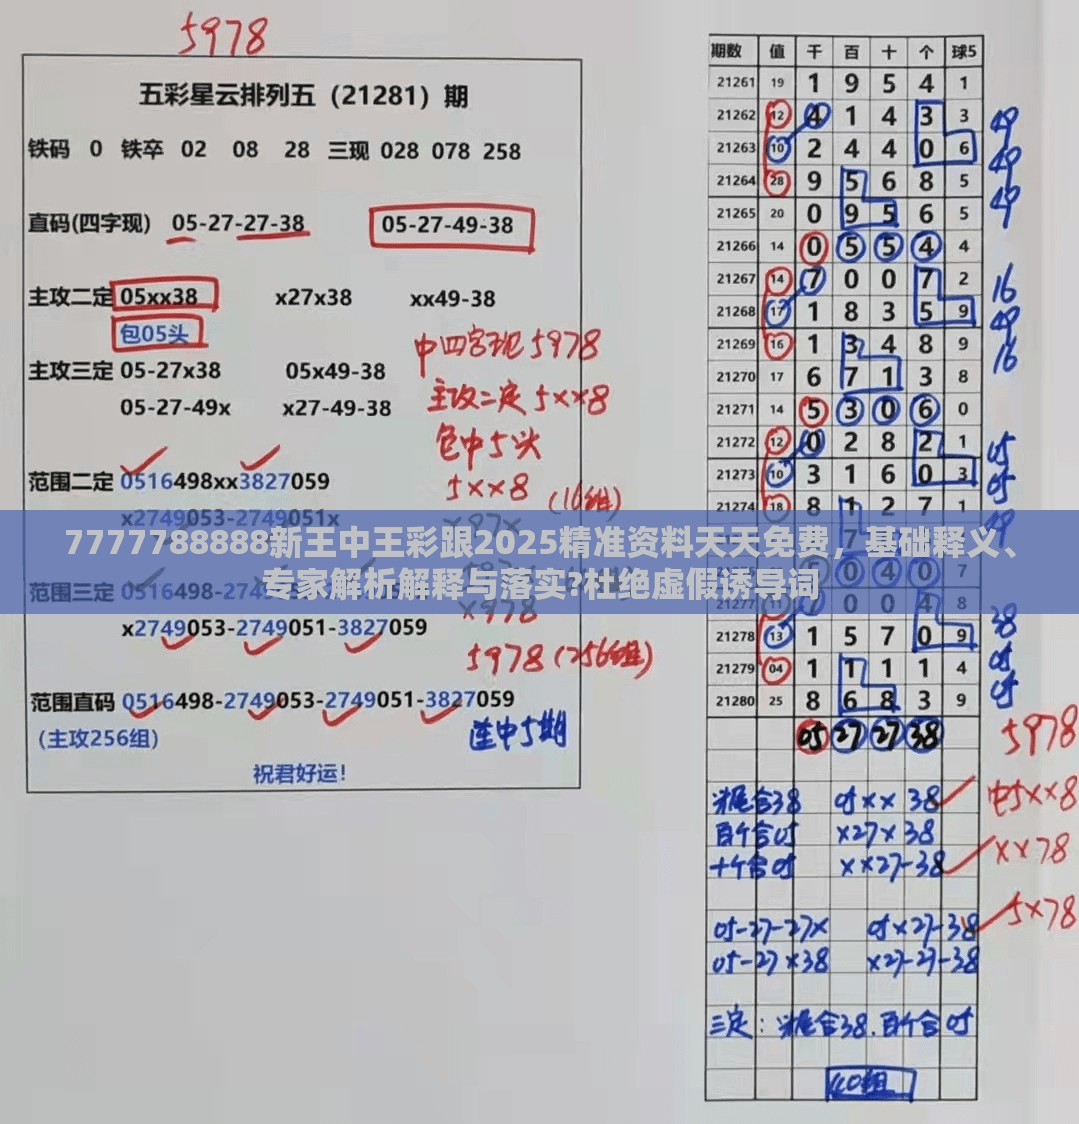 5978
五彩星云排列五（21281）期
铁码 0 铁卒 02 08 28 三现 028 078 258
直码(四字现) 05-27-27-38 05-27-49-38
主攻二定 05xx38 x27x38 xx49-38
包05头
中四字现5978
主攻三定 05-27x38 05x49-38
主攻二定5xx8
05-27-49x x27-49-38
包中5头
范围二定 0516498xx3827059
5xx8 (16组)
x2749053-2749051x
x97x
7777788888新王中王彩跟2025精准资料天天免费，基础释义、
专家解析解释与落实?杜绝虚假诱导词
范围三定
x978
x2749053-2749051-3827059
5978 (256组)
范围直码 0516498-2749053-2749051-3827059
(主攻256组)
连中5期
祝君好运!
期数 值 千 百 十 个 球5
21261 19 1 9 5 4 1
21262 12 4 1 4 3 3 49
21263 10 2 4 4 0 6 49
21264 28 9 5 6 8 5 49
21265 20 0 9 5 6 5
21266 14 0 5 5 4 4
21267 14 7 0 0 7 2 16
21268 17 1 8 3 5 9 49
21269 16 1 3 4 8 9 16
21270 17 6 7 1 3 8
21271 14 5 3 0 6 0
21272 12 0 2 8 2 1 05
21273 10 3 1 6 0 3 05
21274 18 8 1 2 7 1 49
7
5 0 4 0 7
21277 11 0 0 4 8
21278 13 1 5 7 0 9 38
21279 04 1 1 1 1 4 05
21280 25 8 6 8 3 9 05
05 27 27 38 5978
合38 05xx38 中5xx8
百个合05 x27x38
十个合05 xx27-38 xx78
05-27-27x 05x27-38 5x78
05-27x38 x27-27-38
三定: 合38.百个合05
40组